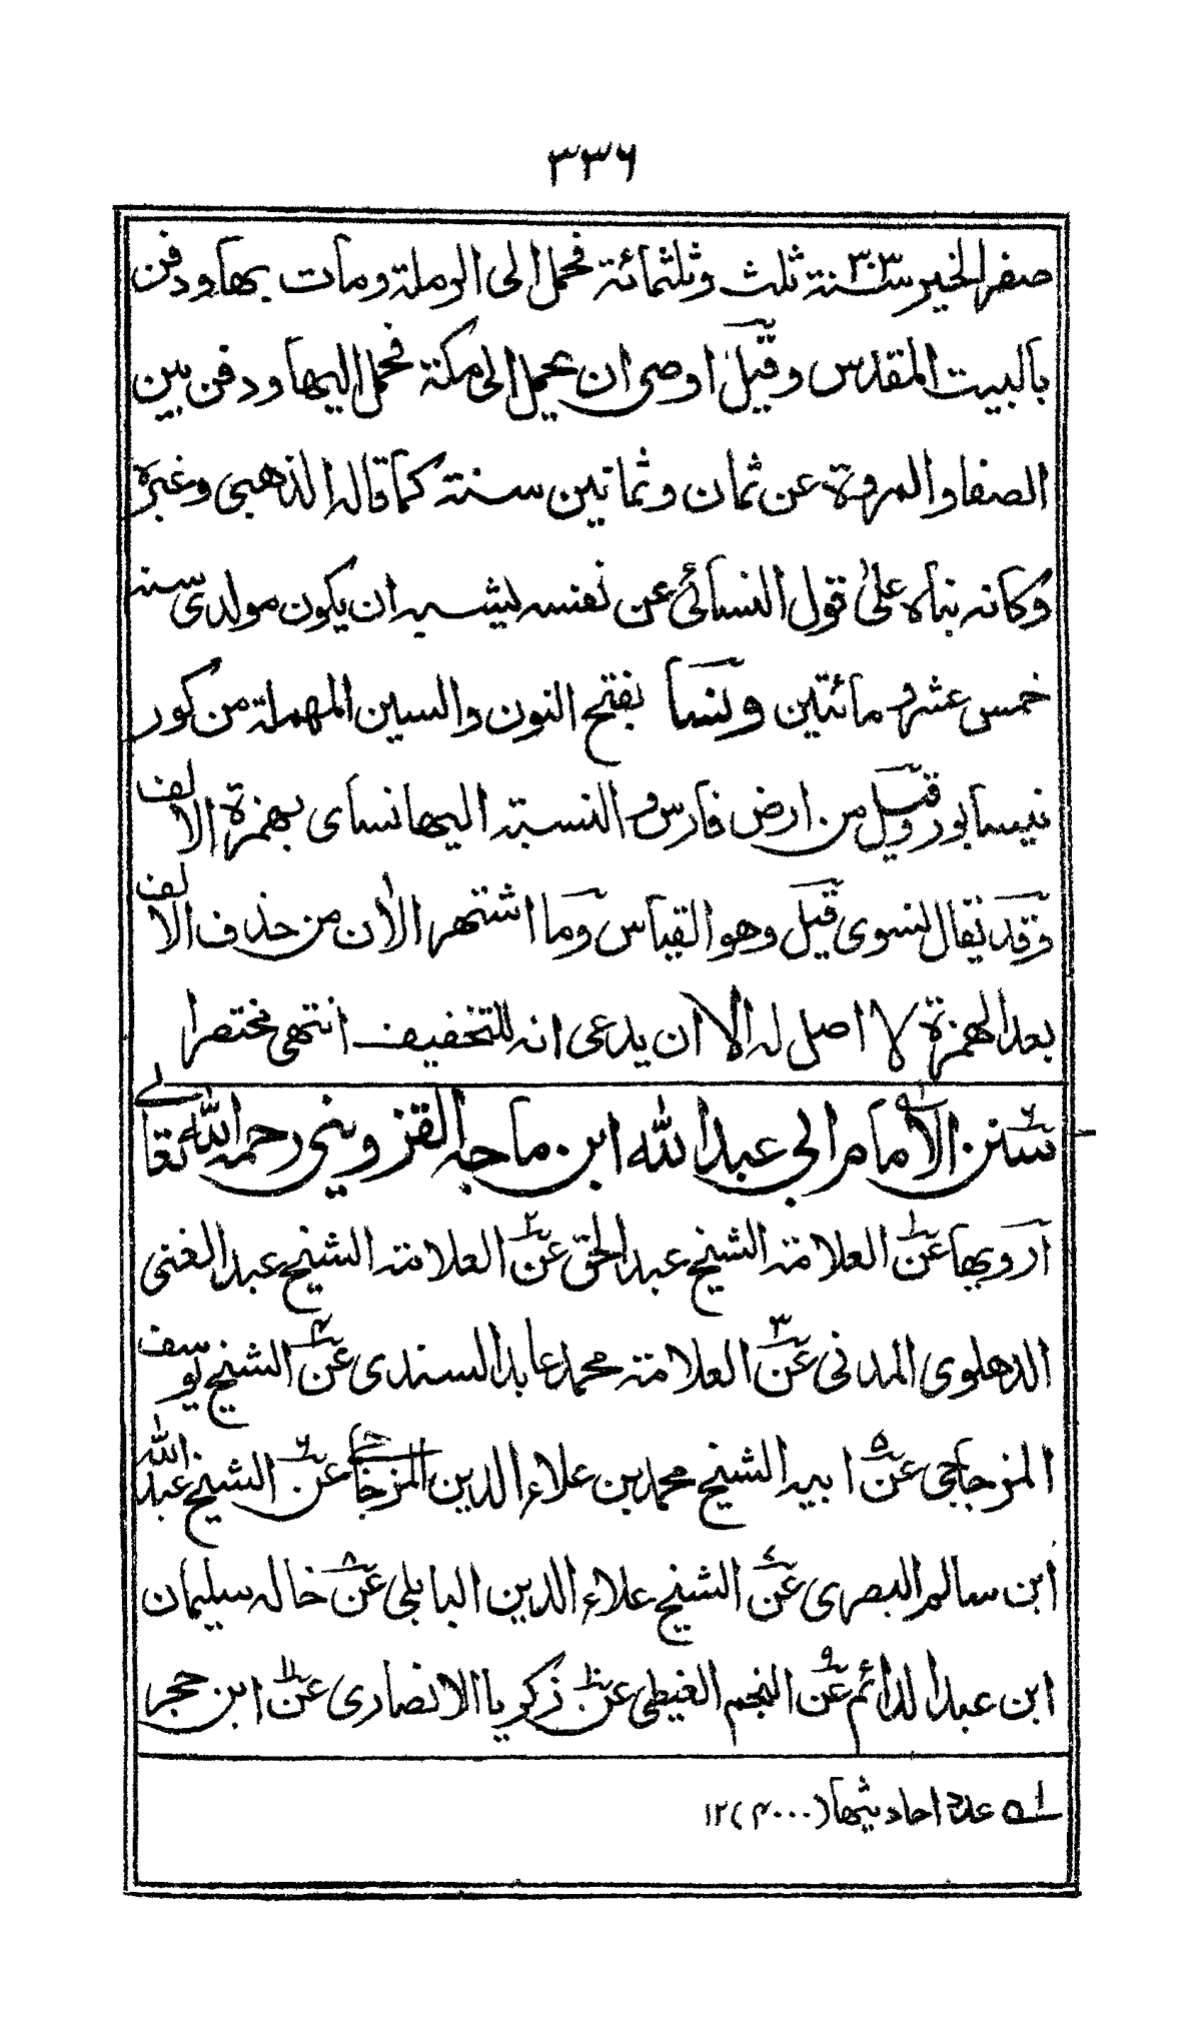 ٣٣٦
صفر الخير سنة ٣٠٣ ثلث وثلثمائة فحمل الى الرملة ومات بها ودفن
بالبيت المقدس وقيل اوصى ان يحمل الى مكة فحمل اليها ودفن بين
الصفا والمروة عن ثمان وثمانين سنة كما قاله الذهبى وغيره
وكانه بناه على قول النسائى عن نفسه يشبه ان يكون مولدى سنة
خمس عشر ومائتين ونسا بفتح النون والسين المهملة من كور
نيسابور وقيل من ارض فارس والنسبة اليها نساى بهمزة الالف
وقد يقال نسوى قيل وهو القياس وما اشتهر الاٰن من حذف الالف
بعد الهمزة لا اصل له الا ان يدعى انه للتخفيف انتهى مختصرا
سنن الامام ابي عبد الله ابن ماجه القزوينى رحمه الله تعالى
ارويها عن العلامة الشيخ عبد الحق عن العلامة الشيخ عبد الغنى
الدهلوى المدنى عن العلامة محمد عابد السندى عن الشيخ يوسف
المزجاجى عن ابيه الشيخ محمد بن علاء الدين المزجاجي عن الشيخ عبد الله
ابن سالم البصرى عن الشيخ علاء الدين البابلى عن خاله سليمان
ابن عبد الدائم عن النجم الغيطى عن زكريا الانصارى عن ابن حجر
١ه عدة احاديثها (۴۰۰۰) ١٢